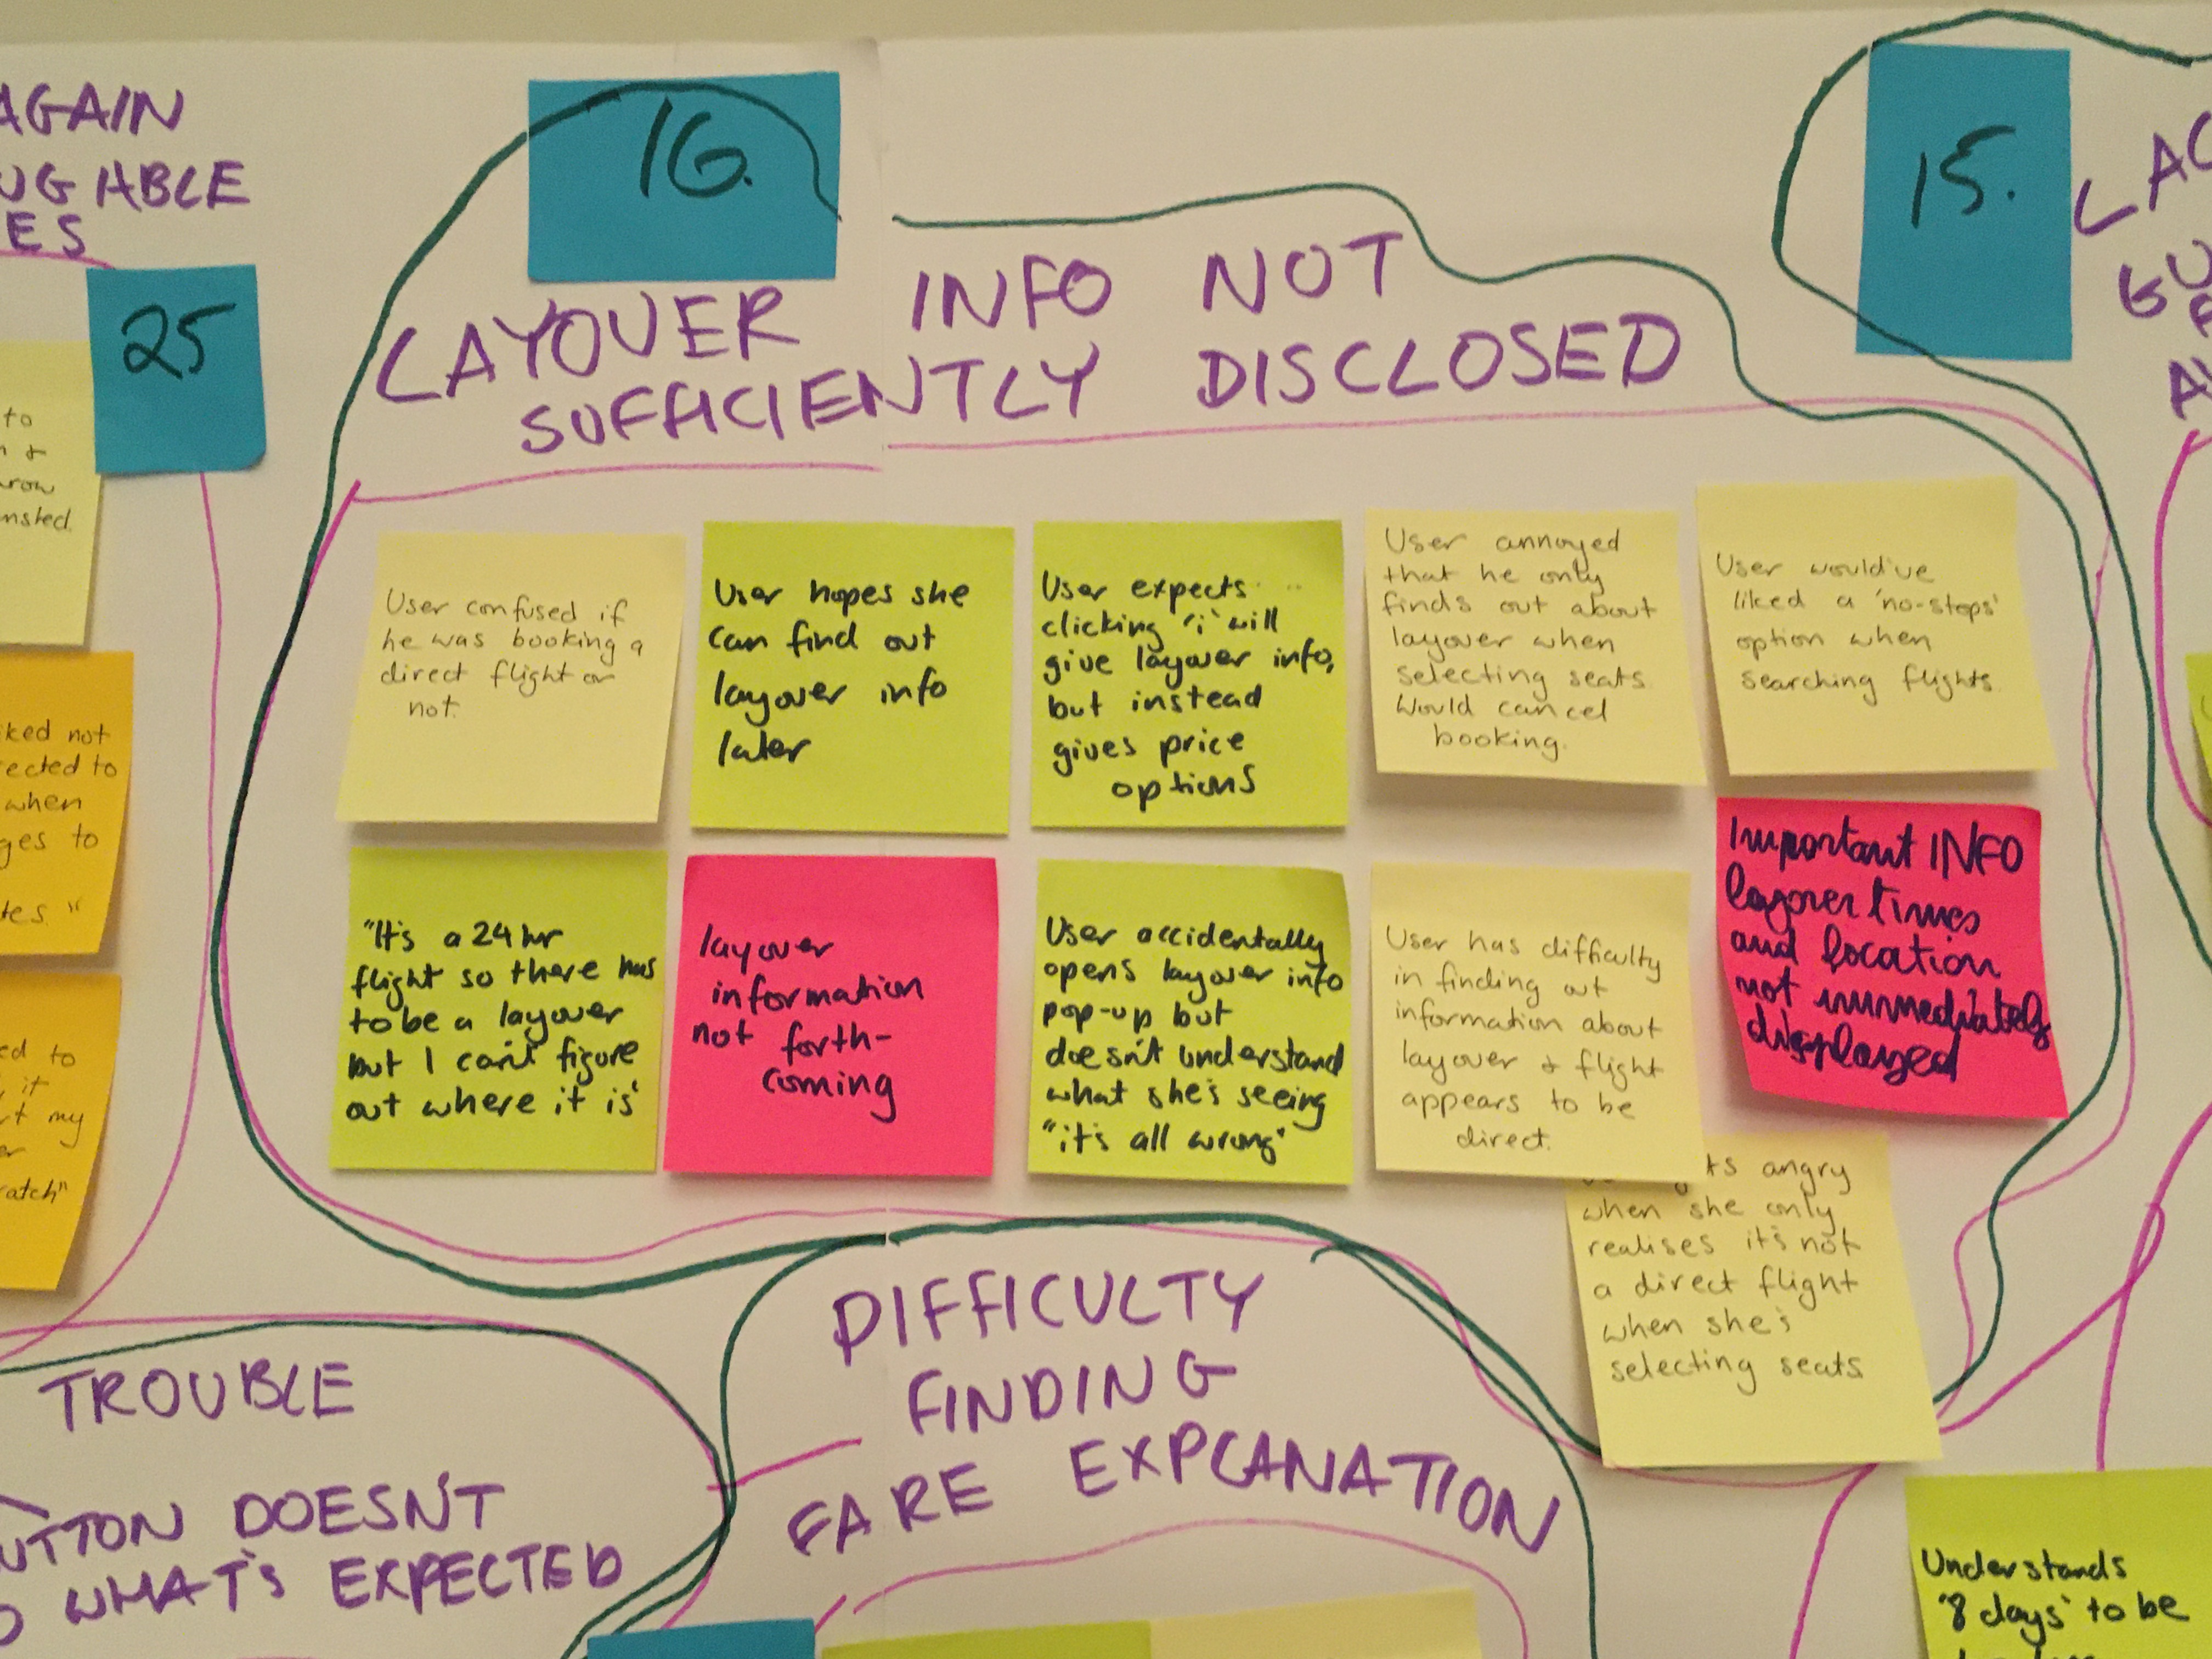 AGAIN
ES
25
to
16.
LAYOVER INFO NOT
SUFFICIENTLY DISCLOSED
15.
User confused if
he was booking a
direct flight or
not.
User hopes she
can find out
layover info
later
User expects
clicking 'i' will
give layover info,
but instead
gives price
options
User annoyed
that he only
finds out about
layover when
selecting seats
Would cancel
booking.
User would've
liked a 'no-stops'
option when
searching flights.
"It's a 24 hr
flight so there has
to be a layover
but I can't figure
out where it is"
layover
information
not forth-
coming
User accidentally
opens layover info
pop-up but
doesn't understand
what she's seeing
"it's all wrong"
User has difficulty
in finding out
information about
layover & flight
appears to be
direct.
Important INFO
layover times
and location
not immediately
displayed
angry
when she only
realises it's not
a direct flight
when she's
selecting seats
not
to
when
to
to
it
my
TROUBLE
DOESN'T
WHAT'S EXPECTED
DIFFICULTY
FINDING
FARE EXPLANATION
Understands
'8 days' to be